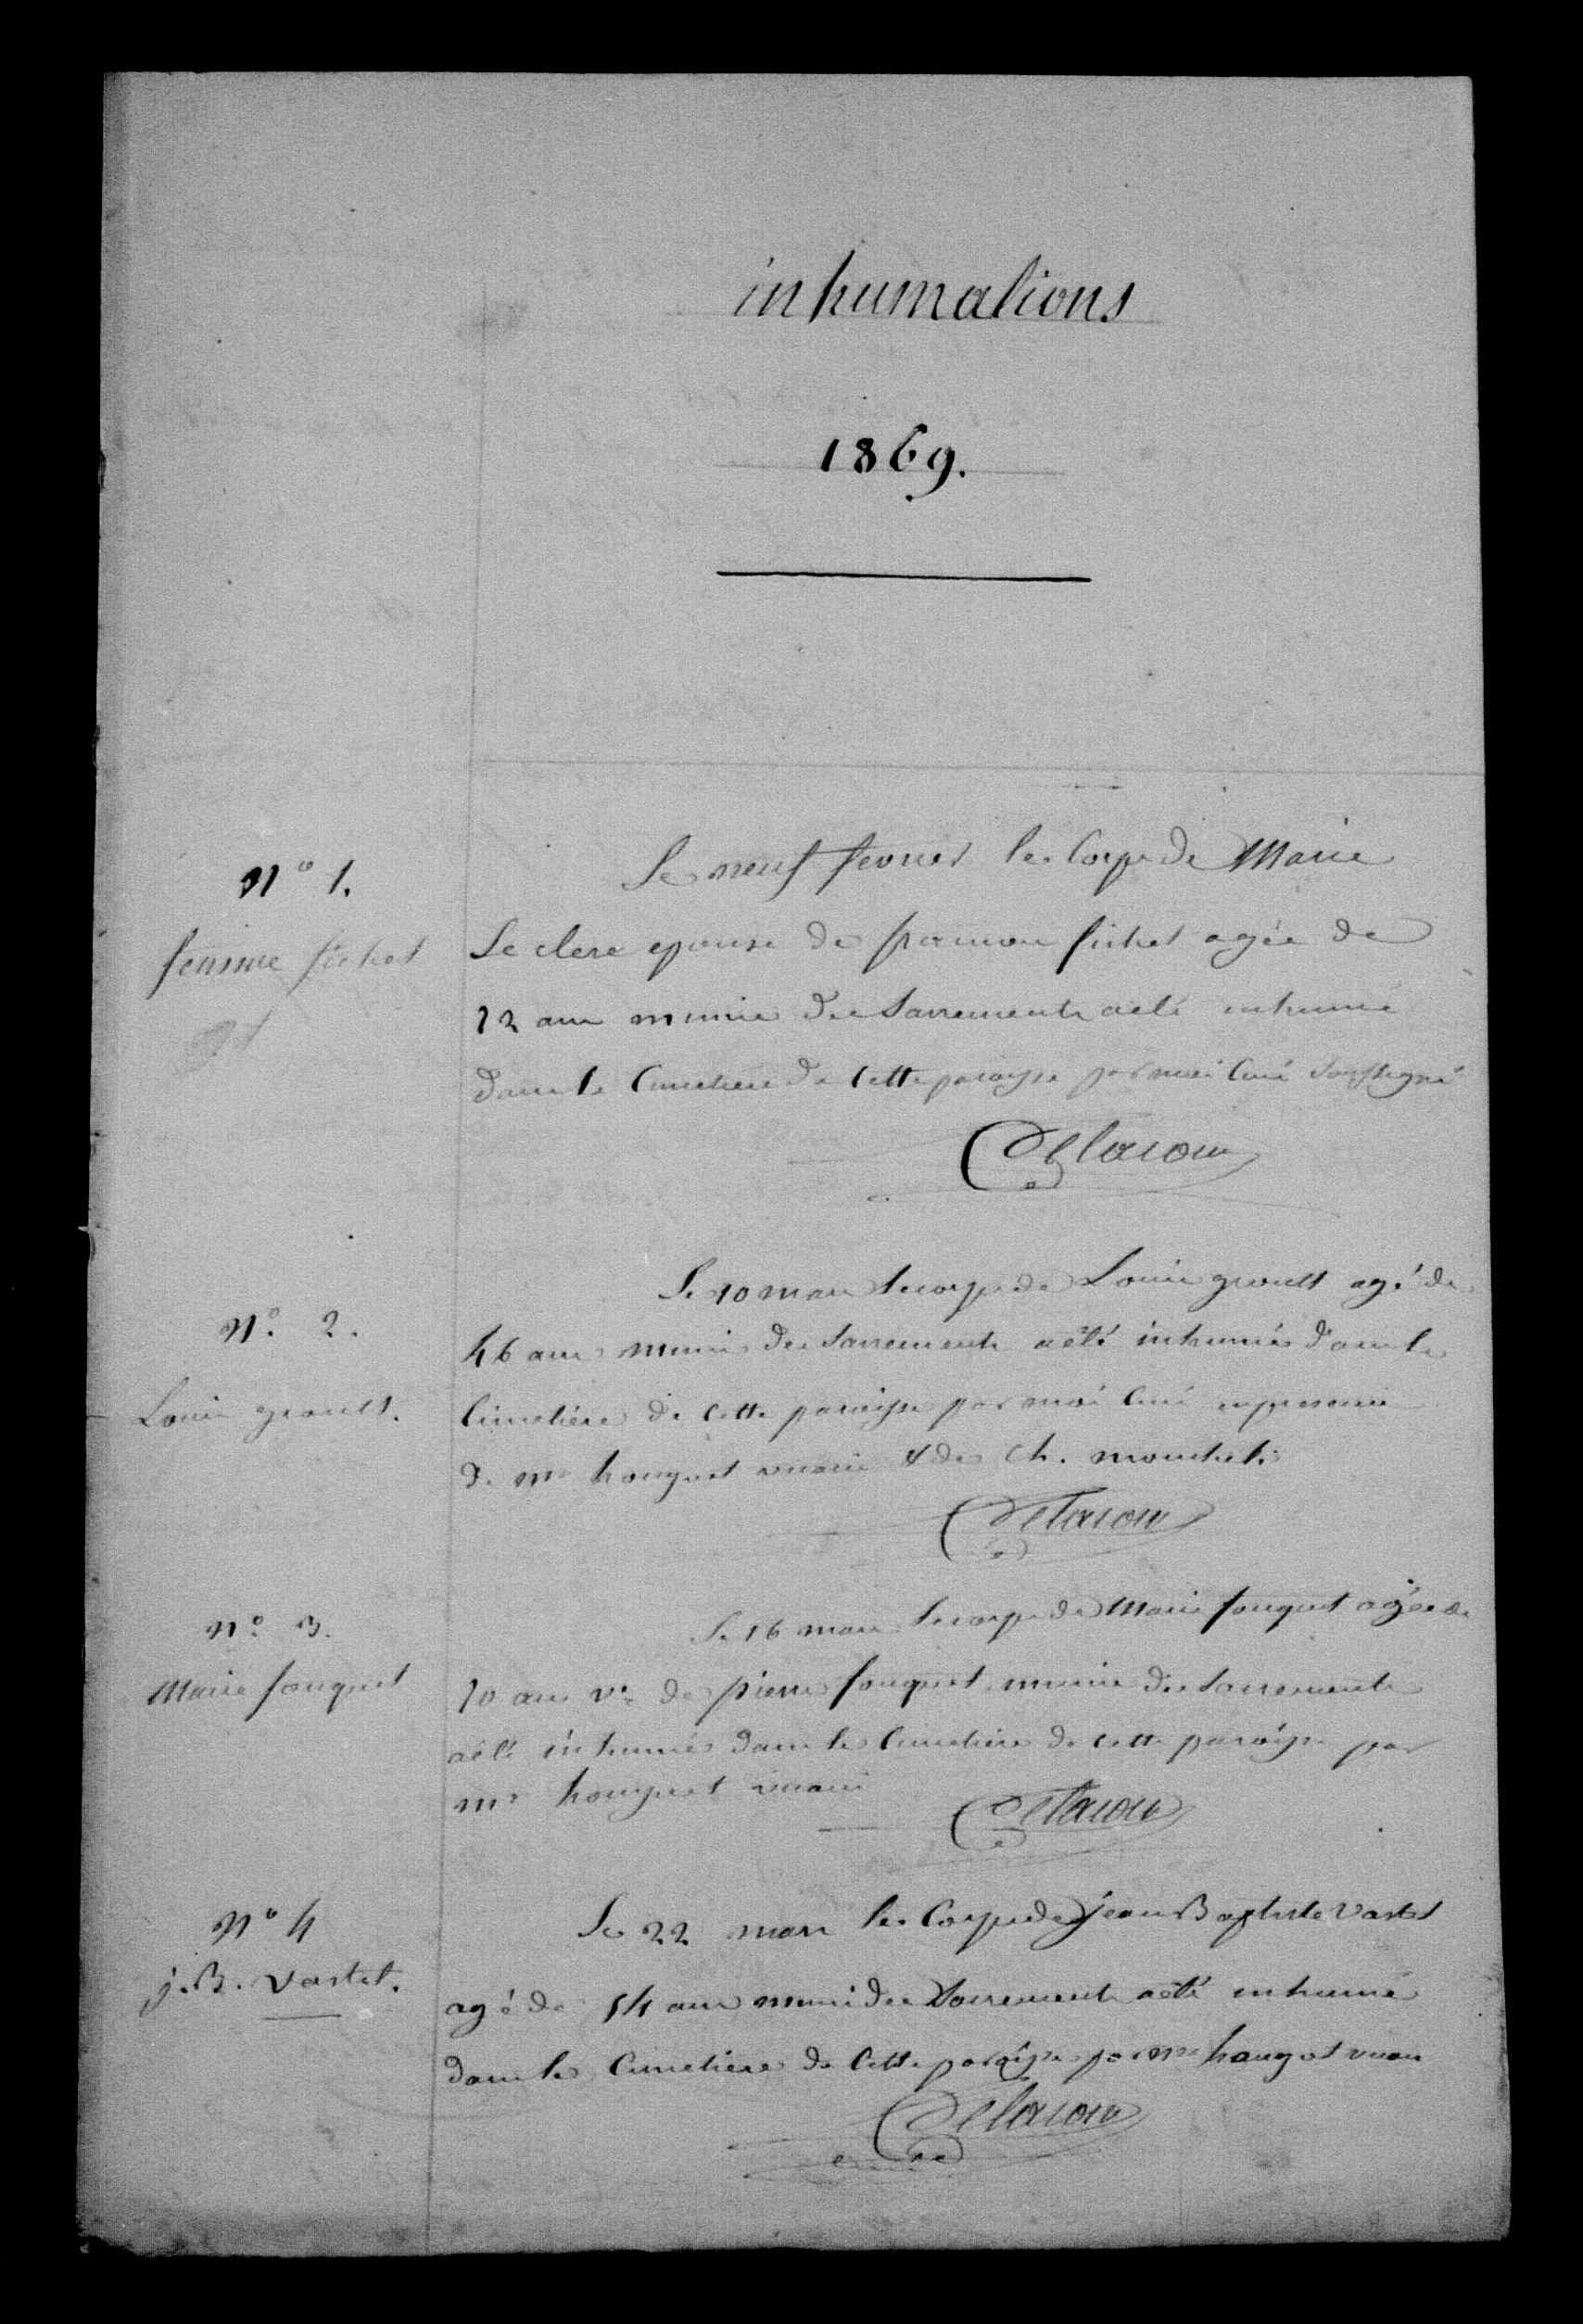 inhumations
1869.
N° 1.
femme fichet
Le neuf fevrier le Corps de Marie
Le clerc epouse de fichet agée de
72 ans munie des Sacrements a été inhumé
dans le Cimetiere de cette paroisse par moi Curé soussigné
Delacour
N°. 2.
Louis groult.
Le 10 mars le corps de Louis groult agé de
46 ans muni des Sacrements a été inhumé dans le
Cimetière de cette paroisse par moi Curé en presence
de mr houguet vicaire & de Ch. mouchel
Delacour
N°. 3.
Marie fouquet
Le 16 mars le corps de Marie fouquet agée de
70 ans ve de pierre fouquet munie des Sacrements
a été inhumé dans le Cimetiere de cette paroisse par
mr houguet vicaire
Delacour
N° 4
j. B. Vastel.
Le 22 mars le Corps de jean Baptiste Vastel
agé de 54 ans muni des Sacrements a été inhumé
dans le Cimetiere de Cette paroisse par mr houguet vicaire
Delacour